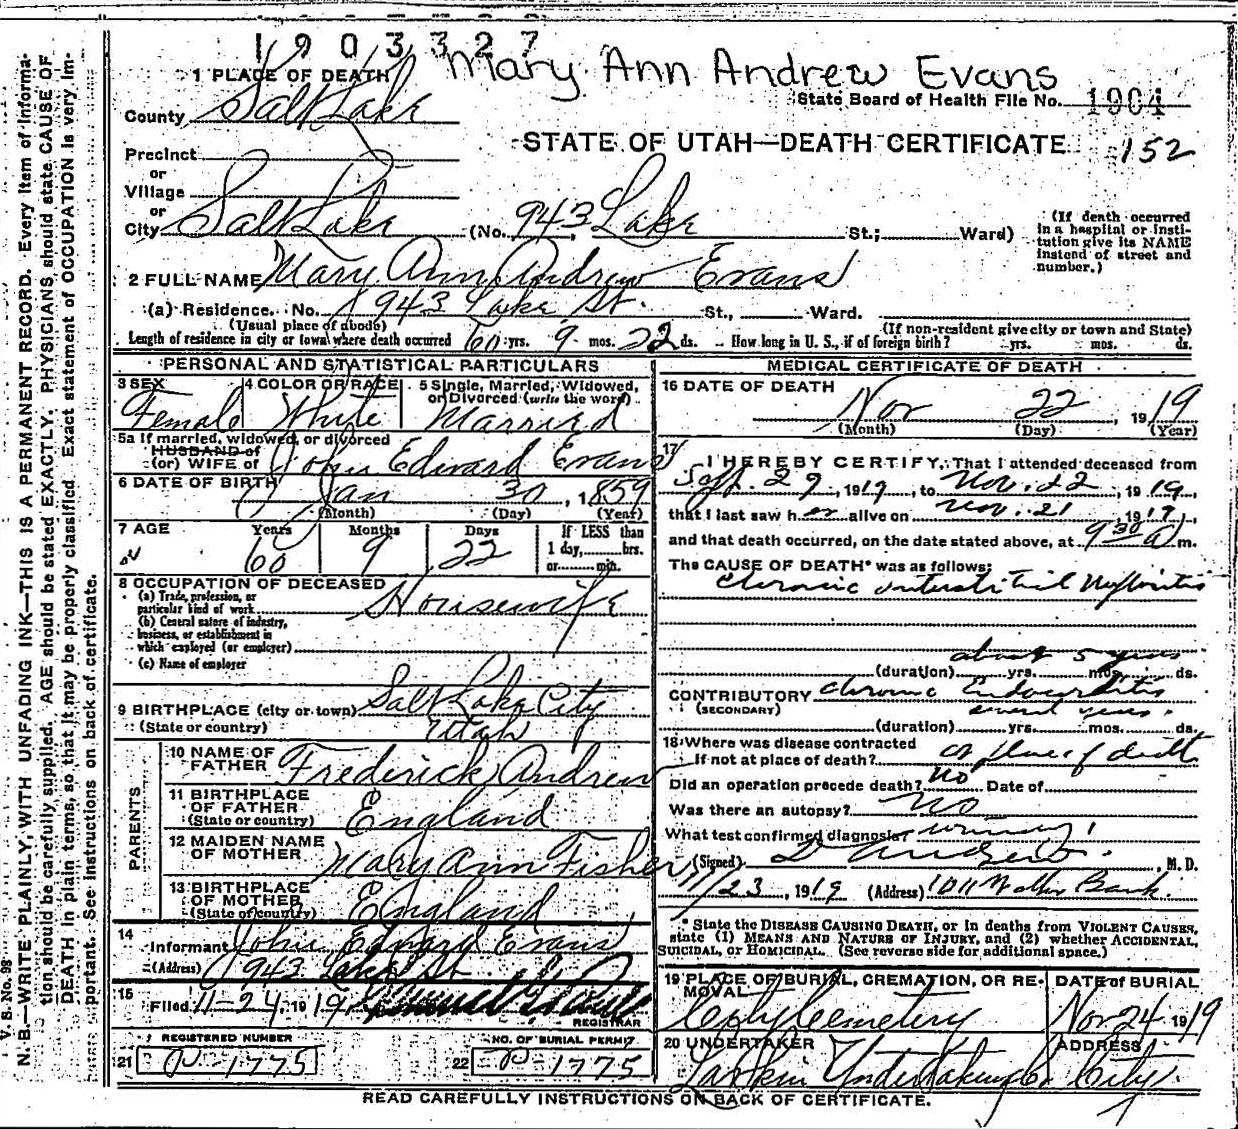 1903327
Mary Ann Andrew Evans
1 PLACE OF DEATH
State Board of Health File No. 1904
County Salt Lake
STATE OF UTAH—DEATH CERTIFICATE 152
Precinct
or
Village
or
City Salt Lake (No. 943 Lake St.; Ward)
(If death occurred
in a hospital or insti-
tution give its NAME
instead of street and
number.)
2 FULL NAME Mary Ann Andrew Evans
(a) Residence. No. 943 Lake St. St., Ward.
(Usual place of abode) (If non-resident give city or town and State)
Length of residence in city or town where death occurred 60 yrs. 9 mos. 22 ds. How long in U. S., if of foreign birth? yrs. mos. ds.
PERSONAL AND STATISTICAL PARTICULARS
3 SEX
Female
4 COLOR OR RACE
White
5 Single, Married, Widowed,
or Divorced (write the word)
Married
5a If married, widowed, or divorced
HUSBAND of
(or) WIFE of John Edward Evans
6 DATE OF BIRTH Jan 30, 1859
(Month) (Day) (Year)
7 AGE Years Months Days
60 9 22
If LESS than
1 day, hrs.
or min.
8 OCCUPATION OF DECEASED
(a) Trade, profession, or
particular kind of work Housewife
(b) General nature of industry,
business, or establishment in
which employed (or employer)
(c) Name of employer
9 BIRTHPLACE (city or town) Salt Lake City
(State or country) Utah
PARENTS
10 NAME OF
FATHER Frederick Andrew
11 BIRTHPLACE
OF FATHER
(State or country) England
12 MAIDEN NAME
OF MOTHER Mary Ann Fisher
13 BIRTHPLACE
OF MOTHER
(State or country) England
14
Informant John Edward Evans
(Address) 943 Lake St
15
Filed 11-24, 1919
REGISTRAR
REGISTERED NUMBER
21 P-1775
NO. OF BURIAL PERMIT
22 P-1775
MEDICAL CERTIFICATE OF DEATH
16 DATE OF DEATH
Nov 22 1919
(Month) (Day) (Year)
17
I HEREBY CERTIFY, That I attended deceased from
Sept. 29, 1919, to Nov. 22, 1919,
that I last saw her alive on Nov. 21, 1919,
and that death occurred, on the date stated above, at 9 30 a m.
The CAUSE OF DEATH* was as follows:
Chronic interstitial Nephritis
about 5 years
(duration) yrs. mos. ds.
CONTRIBUTORY Chronic Endocarditis
(SECONDARY) several years.
(duration) yrs. mos. ds.
18 Where was disease contracted
If not at place of death? at place of death
Did an operation precede death? No Date of
Was there an autopsy? No
What test confirmed diagnosis? urinary
(Signed) Andrew, M. D.
11/23, 1919 (Address) 1011 Walker Bank
* State the DISEASE CAUSING DEATH, or in deaths from VIOLENT CAUSES,
state (1) MEANS AND NATURE OF INJURY, and (2) whether ACCIDENTAL,
SUICIDAL, or HOMICIDAL. (See reverse side for additional space.)
19 PLACE OF BURIAL, CREMATION, OR RE-
MOVAL
City Cemetery
DATE of BURIAL
Nov 24 1919
20 UNDERTAKER
Larkin Undertaking Co
ADDRESS
City.
READ CAREFULLY INSTRUCTIONS ON BACK OF CERTIFICATE.
V. S. No. 98
N. B.—WRITE PLAINLY, WITH UNFADING INK—THIS IS A PERMANENT RECORD. Every item of informa-
tion should be carefully supplied. AGE should be stated EXACTLY. PHYSICIANS should state CAUSE OF
DEATH in plain terms, so that it may be properly classified. Exact statement of OCCUPATION is very im-
portant. See instructions on back of certificate.